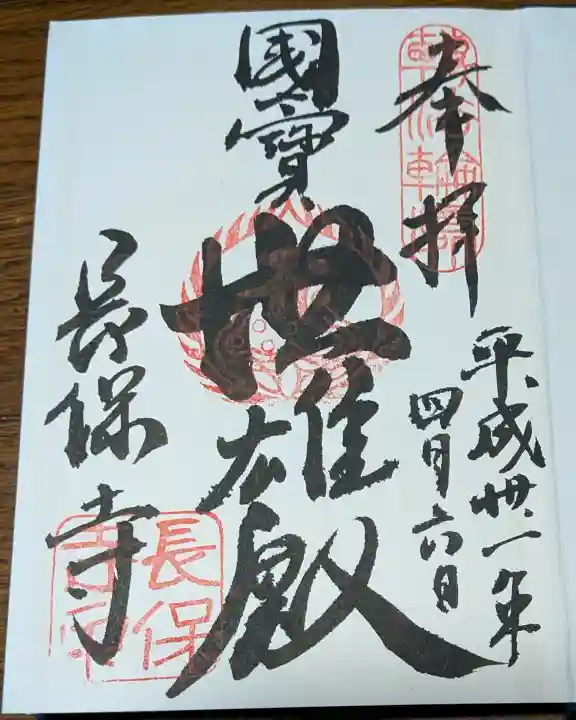 奉拝
平成卅一年
四月六日
國寶
世雄殿
長保寺
長保